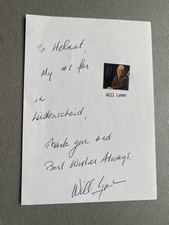 To Helmut,
My #1 fan
in
Lüdenscheid,
Thank you and
Best Wishes Always.
Will Lyman
Will Lyman